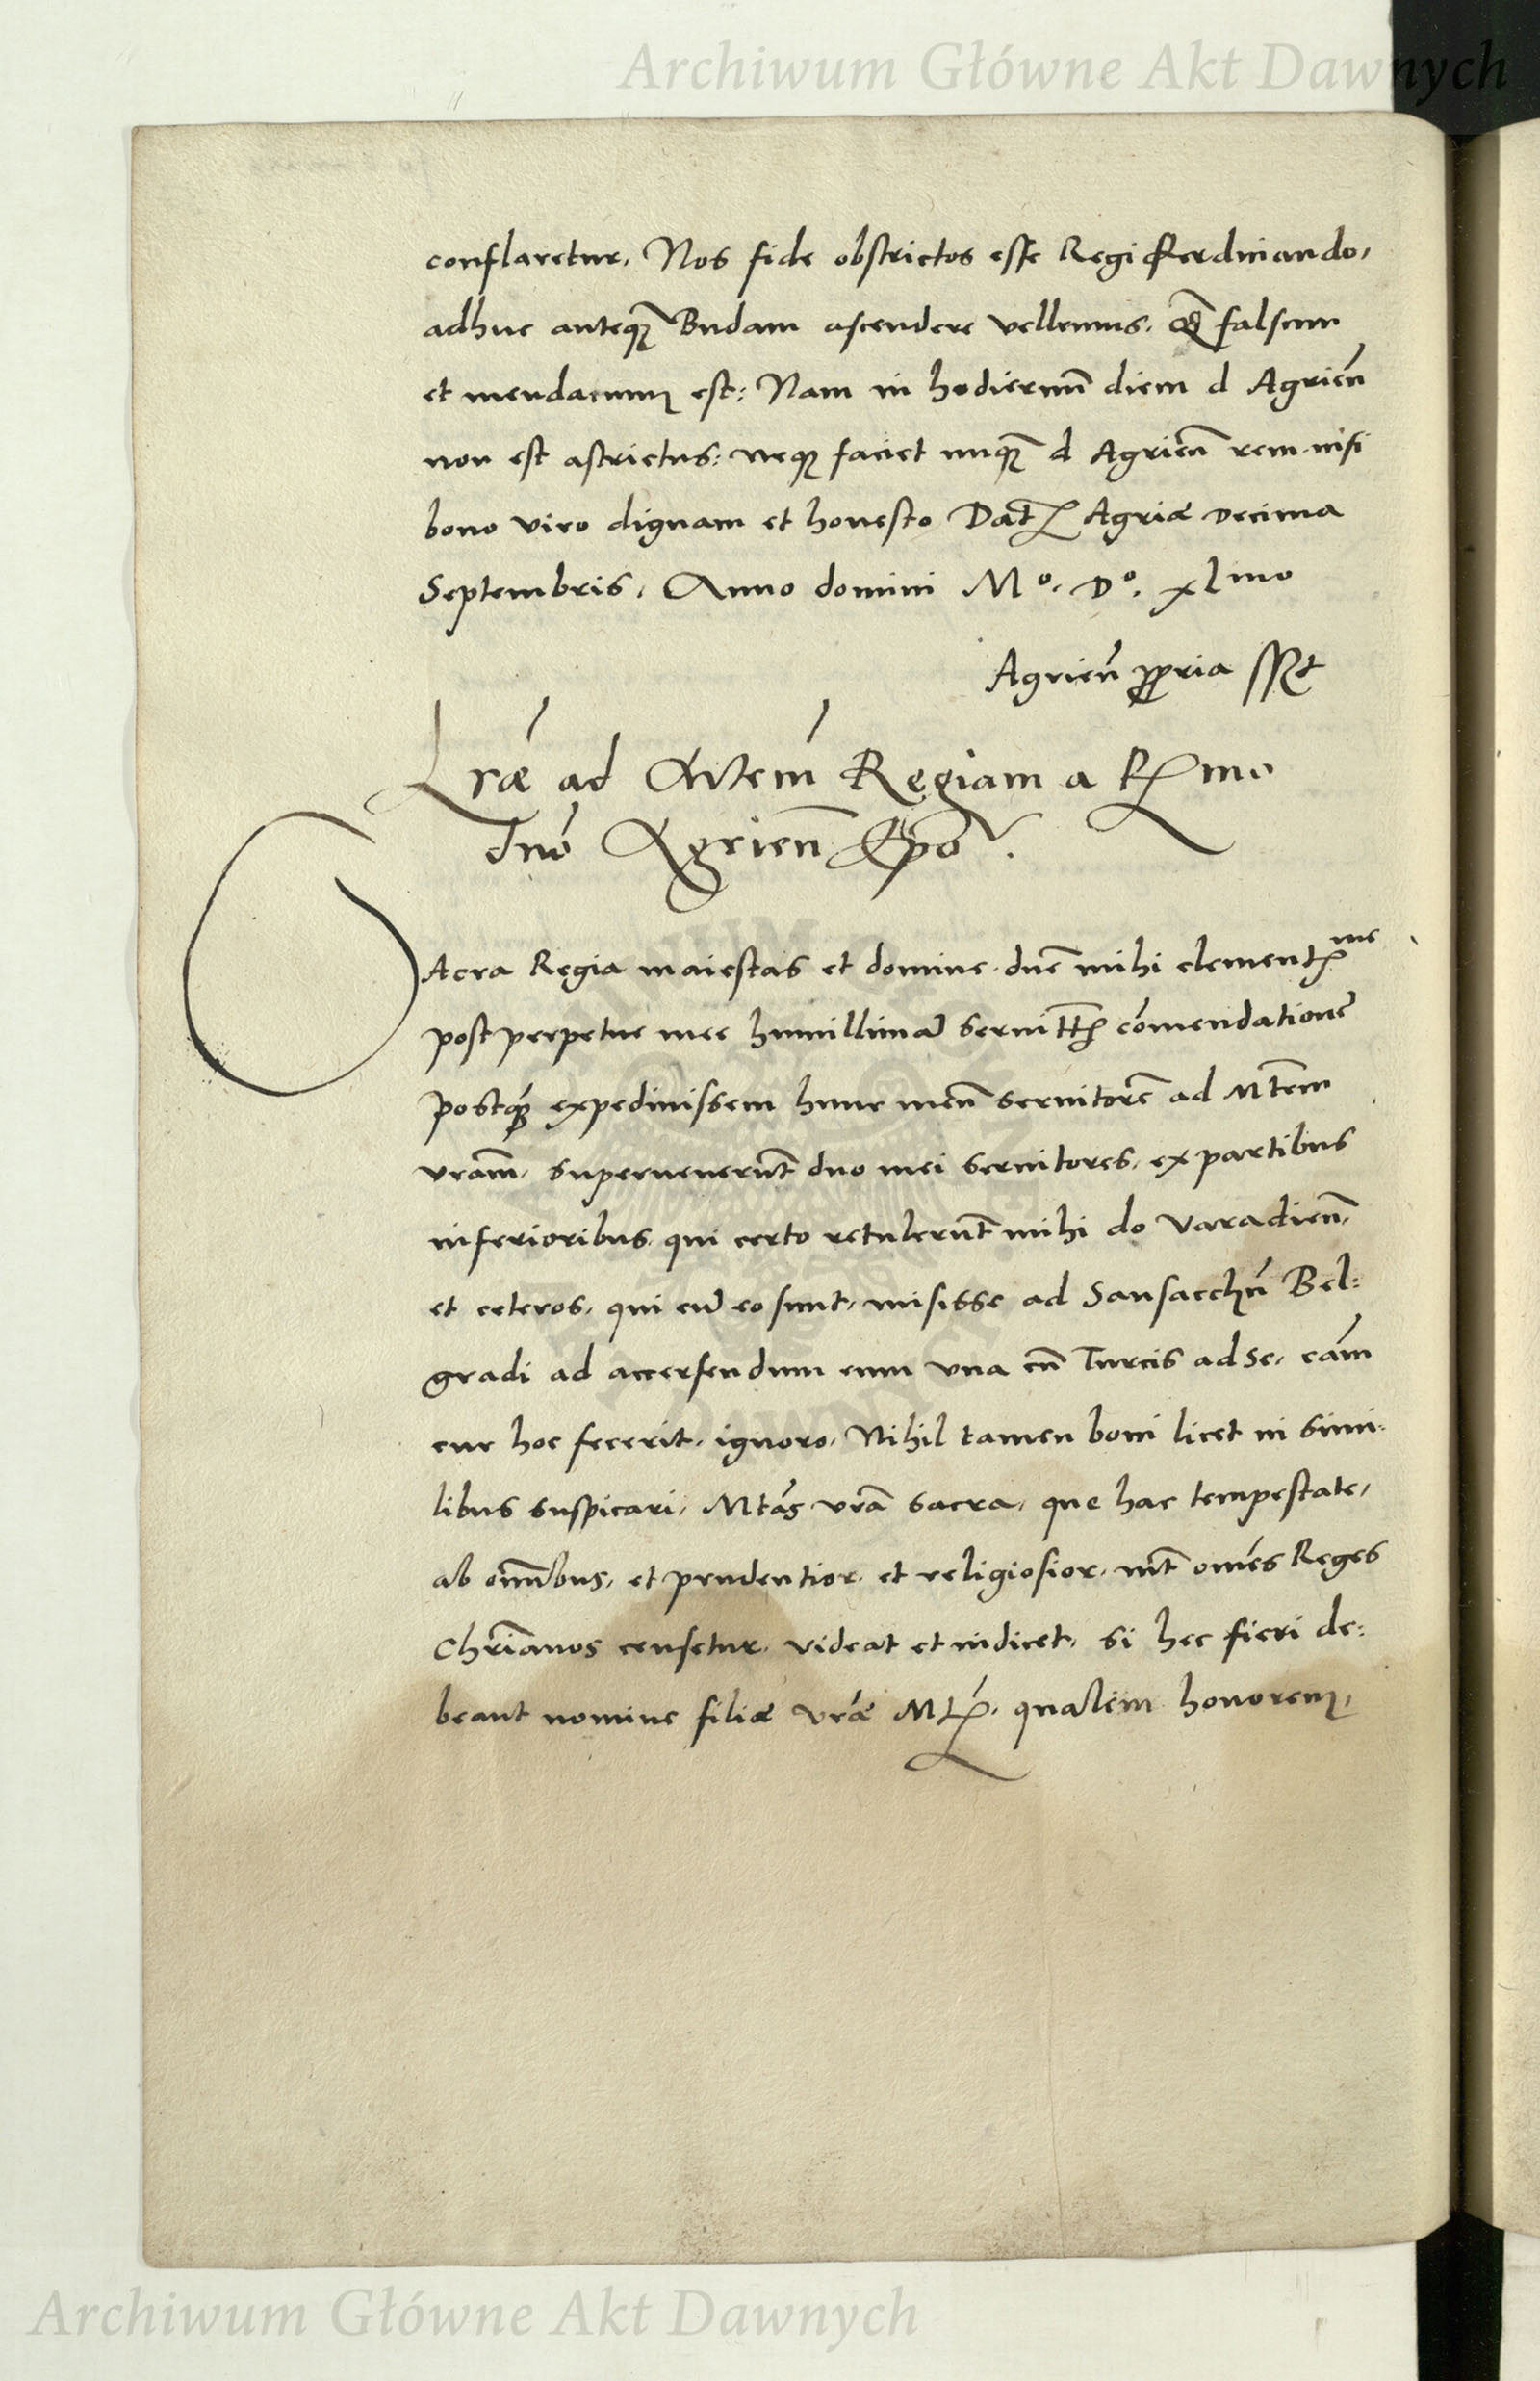 Archiwum Główne Akt Dawnych
conflaretur, Nos fide obstrictos esse Regi Ferdinando,
adhuc anteq̃ Budam ascendere vellemus. Qd̃ falsum
et mendacium est: Nam in hodiernũ diem d Agrien̄
non est astrictus: neqȝ faciet unq̃ d Agrien̄ rem nisi
bono viro dignam et honesto Datꝭ Agriæ Decima
Septembris, Anno domini Mº. Dº. xlmo
Agrien̄ ꝓpria sszt
Lr̃æ ad Mtem̃ Regiam a Rꝭmo
dño Agrien̄ Ep̃o.
Sacra Regia maiestas et domine dñe mihi clementꝭme
post perpetue mee humillimaꝝ seruittꝭ cõmendationẽ
Postq̃ expediuissem hunc meũ seruitorẽ ad Mtẽm
vrãm, superuenerũt duo mei seruitores, ex partibus
inferioribus, qui certo retulerũt mihi do Varadien̄,
et ceteros, qui cũ eo sunt, misisse ad Sansacchũ Bel:
gradi ad accersendum eum vna cũ Turcis ad se, cãm
cur hoc fecerit, ignoro, Nihil tamen boni licet in simi:
libus suspicari, Mtãs vrã sacra, que hac tempestate,
ab omĩbus, et prudentior et religiosior, int̃ om̃es Reges
Chr̃ianos censetur, videat et iudicet, si hec fieri de:
beant nomine filiæ vr̃æ Mtꝭ, qualem honorem,
Archiwum Główne Akt Dawnych